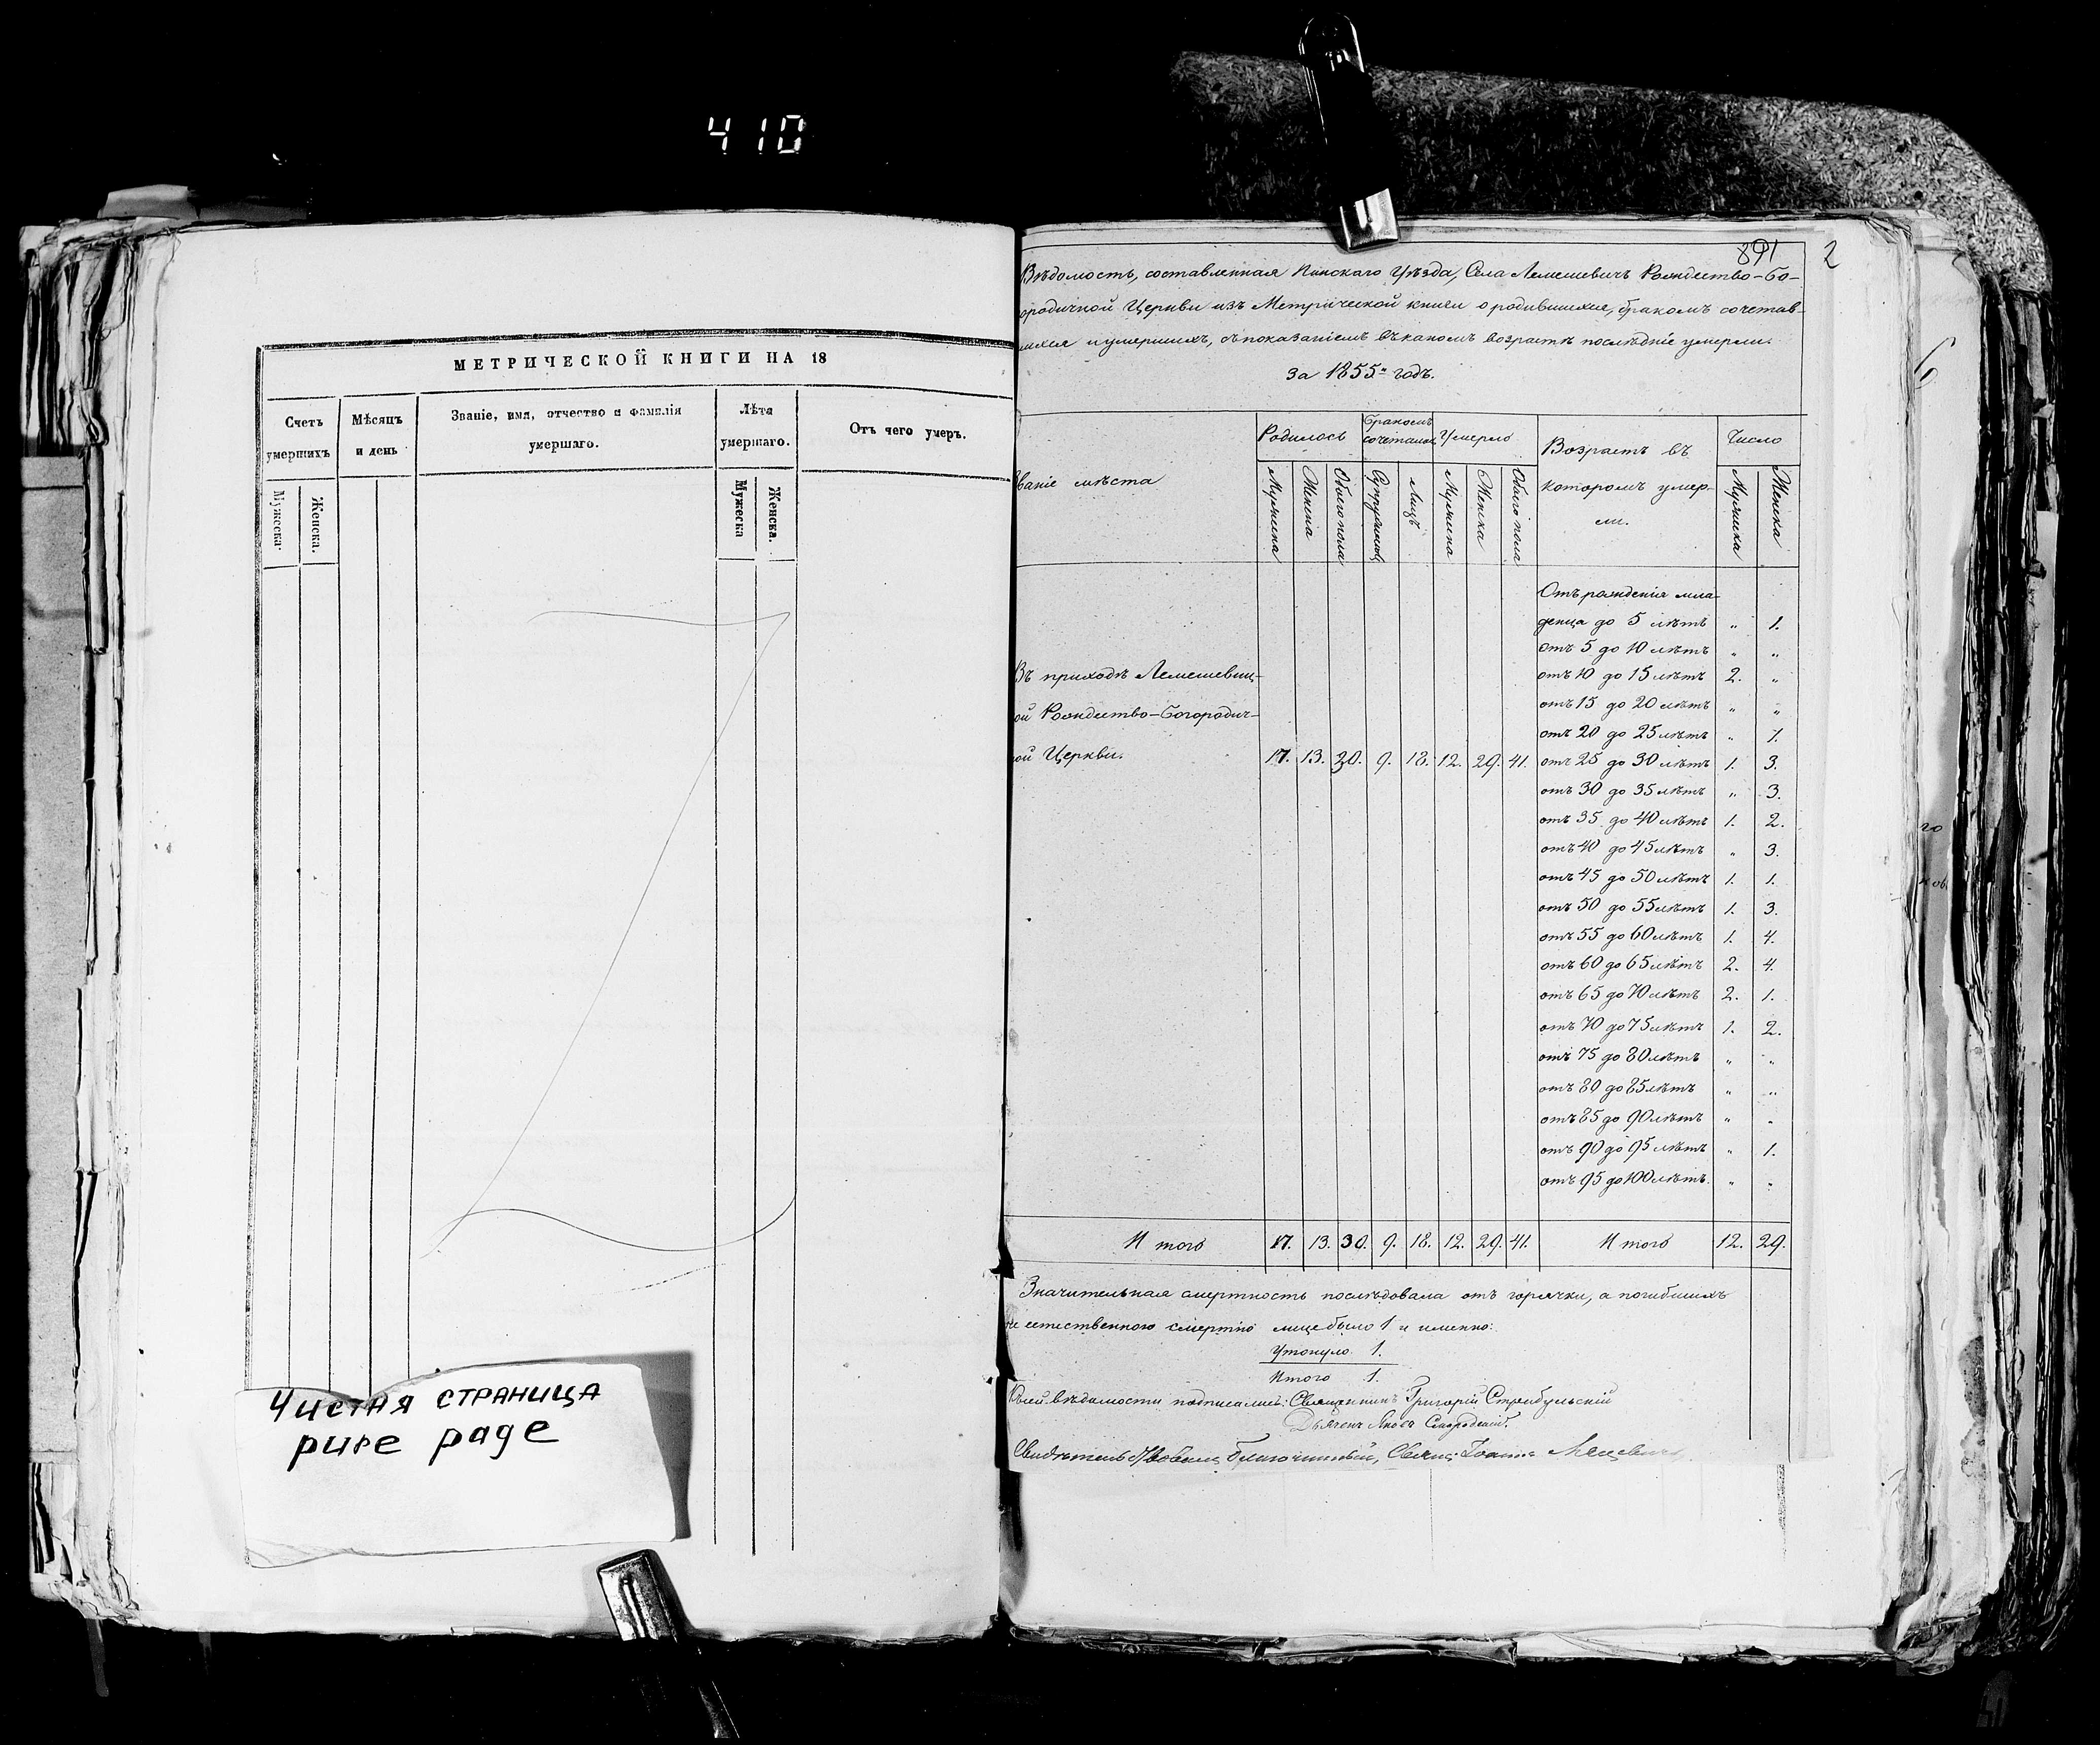 410
МЕТРИЧЕСКОЙ КНИГИ НА 18
Счетъ умершихъ
Мѣсяцъ и день
Званіе, имя, отчество и фамилія умершаго.
Лѣта умершаго.
Отъ чего умеръ.
Мужеска
Женска.
Мужеска
Женска.
Чистая страница
pure page
891 2
Вѣдомость, составленная Пинскаго Уѣзда, Села Лемешевичъ Рождество-Бо-
ородичной Церкви изъ Метрической книги о родившихся, бракомъ сочетав-
шихся и умершихъ, съ показаніемъ въ какомъ возрастѣ послѣдніе умерли.
За 1855й годъ.
званіе мѣста
Родилось
Бракомъ сочеталось
Умерло
Возрастъ въ которомъ умер-
ли.
Число
Мужеска
Женска
Обоего пола
Супружествъ
Лицъ
Мужеска
Женска
Обоего пола
Мужеска
Женска
Отъ рожденія мла-
денца до 5 лѣтъ " 1.
отъ 5 до 10 лѣтъ " "
отъ 10 до 15 лѣтъ 2. "
отъ 15 до 20 лѣтъ " "
отъ 20 до 25 лѣтъ " 1.
Въ приходѣ Лемешевиц-
ой Рождество-Богородич-
ой Церкви. 17. 13. 30. 9. 18. 12. 29. 41.
отъ 25 до 30 лѣтъ 1. 3.
отъ 30 до 35 лѣтъ " 3.
отъ 35 до 40 лѣтъ 1. 2.
отъ 40 до 45 лѣтъ " 3.
отъ 45 до 50 лѣтъ 1. 1.
отъ 50 до 55 лѣтъ 1. 3.
отъ 55 до 60 лѣтъ 1. 4.
отъ 60 до 65 лѣтъ 2. 4.
отъ 65 до 70 лѣтъ 2. 1.
отъ 70 до 75 лѣтъ 1. 2.
отъ 75 до 80 лѣтъ " "
отъ 80 до 85 лѣтъ " "
отъ 85 до 90 лѣтъ " "
отъ 90 до 95 лѣтъ " 1.
отъ 95 до 100 лѣтъ. " "
Итого 17. 13. 30. 9. 18. 12. 29. 41. Итого 12. 29.
Значительная смертность послѣдовала отъ горячки, а погибшихъ
не естественною смертію лице было 1 и именно:
Утонуло 1.
Итого 1.
Къ сей вѣдомости подписались: Священникъ Григорій Стребульскій
Дьячекъ Яковъ
благочинный, Іоаннъ